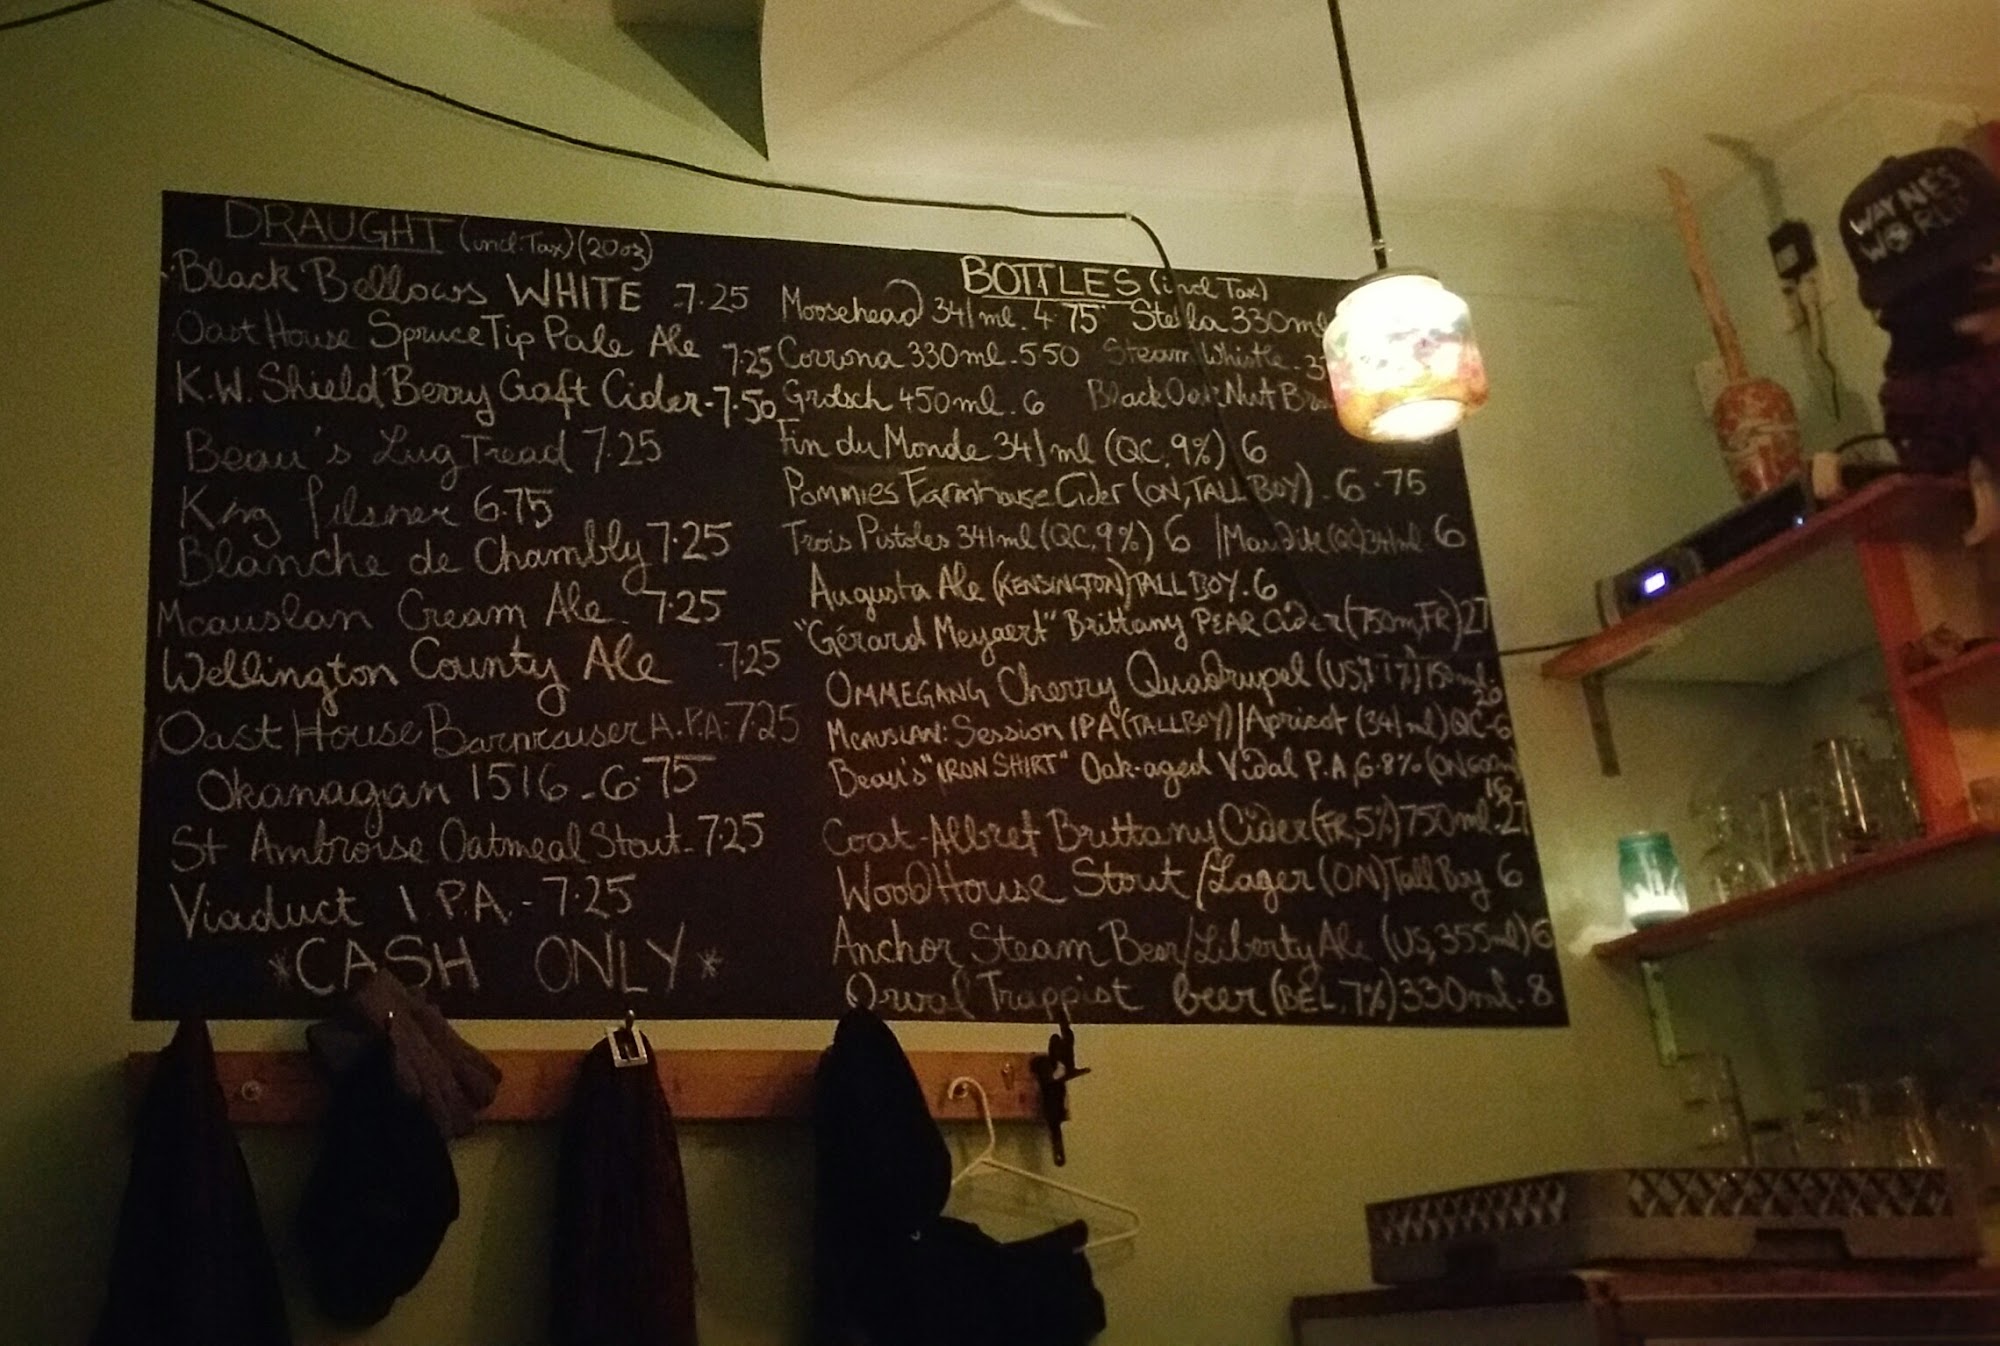 DRAUGHT (incl. Tax) (20oz)
Black Bellows WHITE 7.25
Oast House Spruce Tip Pale Ale 7.25
K.W. Shield Berry Craft Cider - 7.50
Beau's Lug Tread 7.25
King Pilsner 6.75
Blanche de Chambly 7.25
Mcauslan Cream Ale. 7.25
Wellington County Ale 7.25
Oast House Barnraiser A.P.A. 7.25
Okanagan 1516 - 6.75
St Ambroise Oatmeal Stout - 7.25
Viaduct I.P.A. - 7.25
*CASH ONLY*
BOTTLES (incl Tax)
Moosehead 341ml. 4.75 Stella 330ml
Corrona 330ml. 5.50 Steam Whistle.
Grolsch 450ml. 6 Black Oak Nut
Fin du Monde 341ml (QC, 9%) 6
Pommies Farmhouse Cider (ON, TALL BOY). 6.75
Trois Pistoles 341ml (QC, 9%) 6 | Maudite (QC) 341ml. 6
Augusta Ale (KENSINGTON) TALL BOY. 6
"Gérard Meyaert" Brittany PEAR Cider (750m, FR) 27
OMMEGANG Cherry Quadrupel (US, 750ml. 20
MCAUSLAN: Session IPA (TALLBOY) | Apricot (341ml) QC-6
Beau's "IRON SHIRT" Oak-aged Vidal P.A, 6.8% (ON 16
Coat-Albret Brittany Cider (FR, 5%) 750ml. 27
WoodHouse Stout/Lager (ON) Tall Boy 6
Anchor Steam Beer/Liberty Ale (US, 355ml) 6
Orval Trappist beer (BEL, 7%) 330ml. 8
WAYNE'S
WORLD